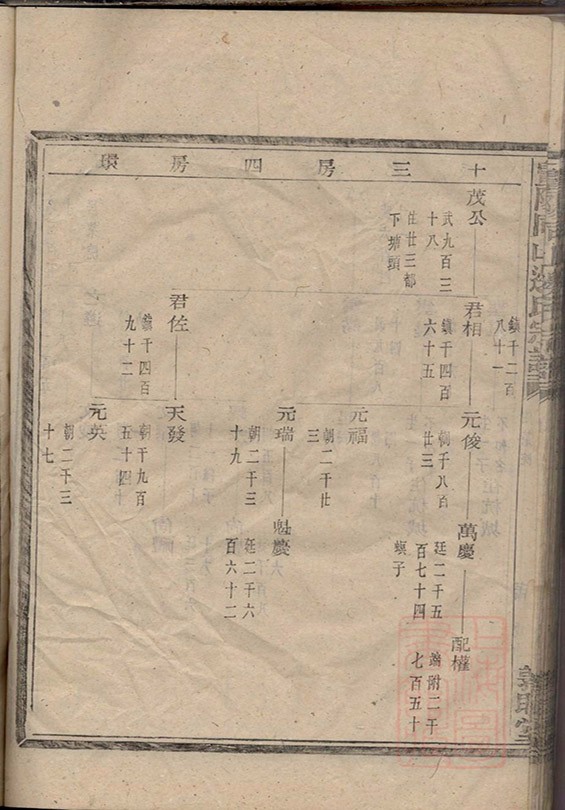 十三房四房環
茂公
武九百三
十八
住廿三都
下埔頭
君相
鎮千四百
六十五
元俊
朝千八百
廿三
萬慶
廷二千五
百七十四
螟子
配權
鎮千二百
八十一
鏞附二千
七百五十
元福
朝二千廿
三
元瑞
朝二千三
十九
魁慶
廷二千六
百六十二
君佐
鎮千四百
九十二
天發
朝千九百
五十四
元英
朝二千三
十七
氏宗譜